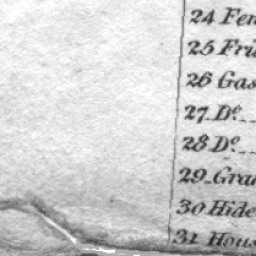 24 Fen
25 Fri
26 Gas
27 Dº
28 Dº
29 Gran
30 Hide
31 Hous